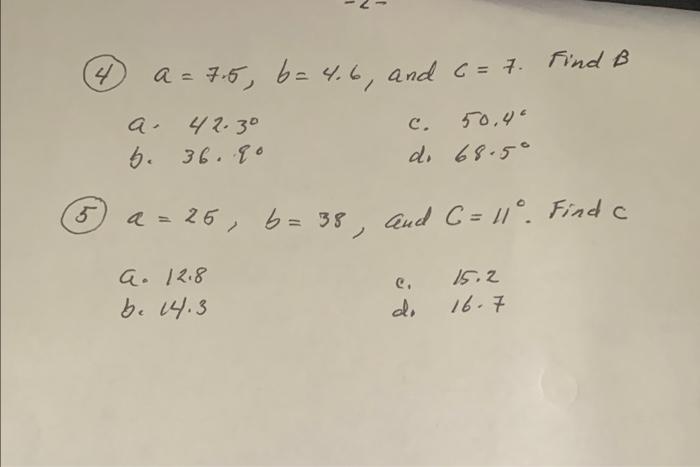 -2-
④ a = 7.5, b = 4.6, and c = 7. Find B
a. 42.3° c. 50.4°
b. 36.9° d. 68.5°
⑤ a = 26, b = 38, and C = 11°. Find c
a. 12.8 c. 15.2
b. 14.3 d. 16.7